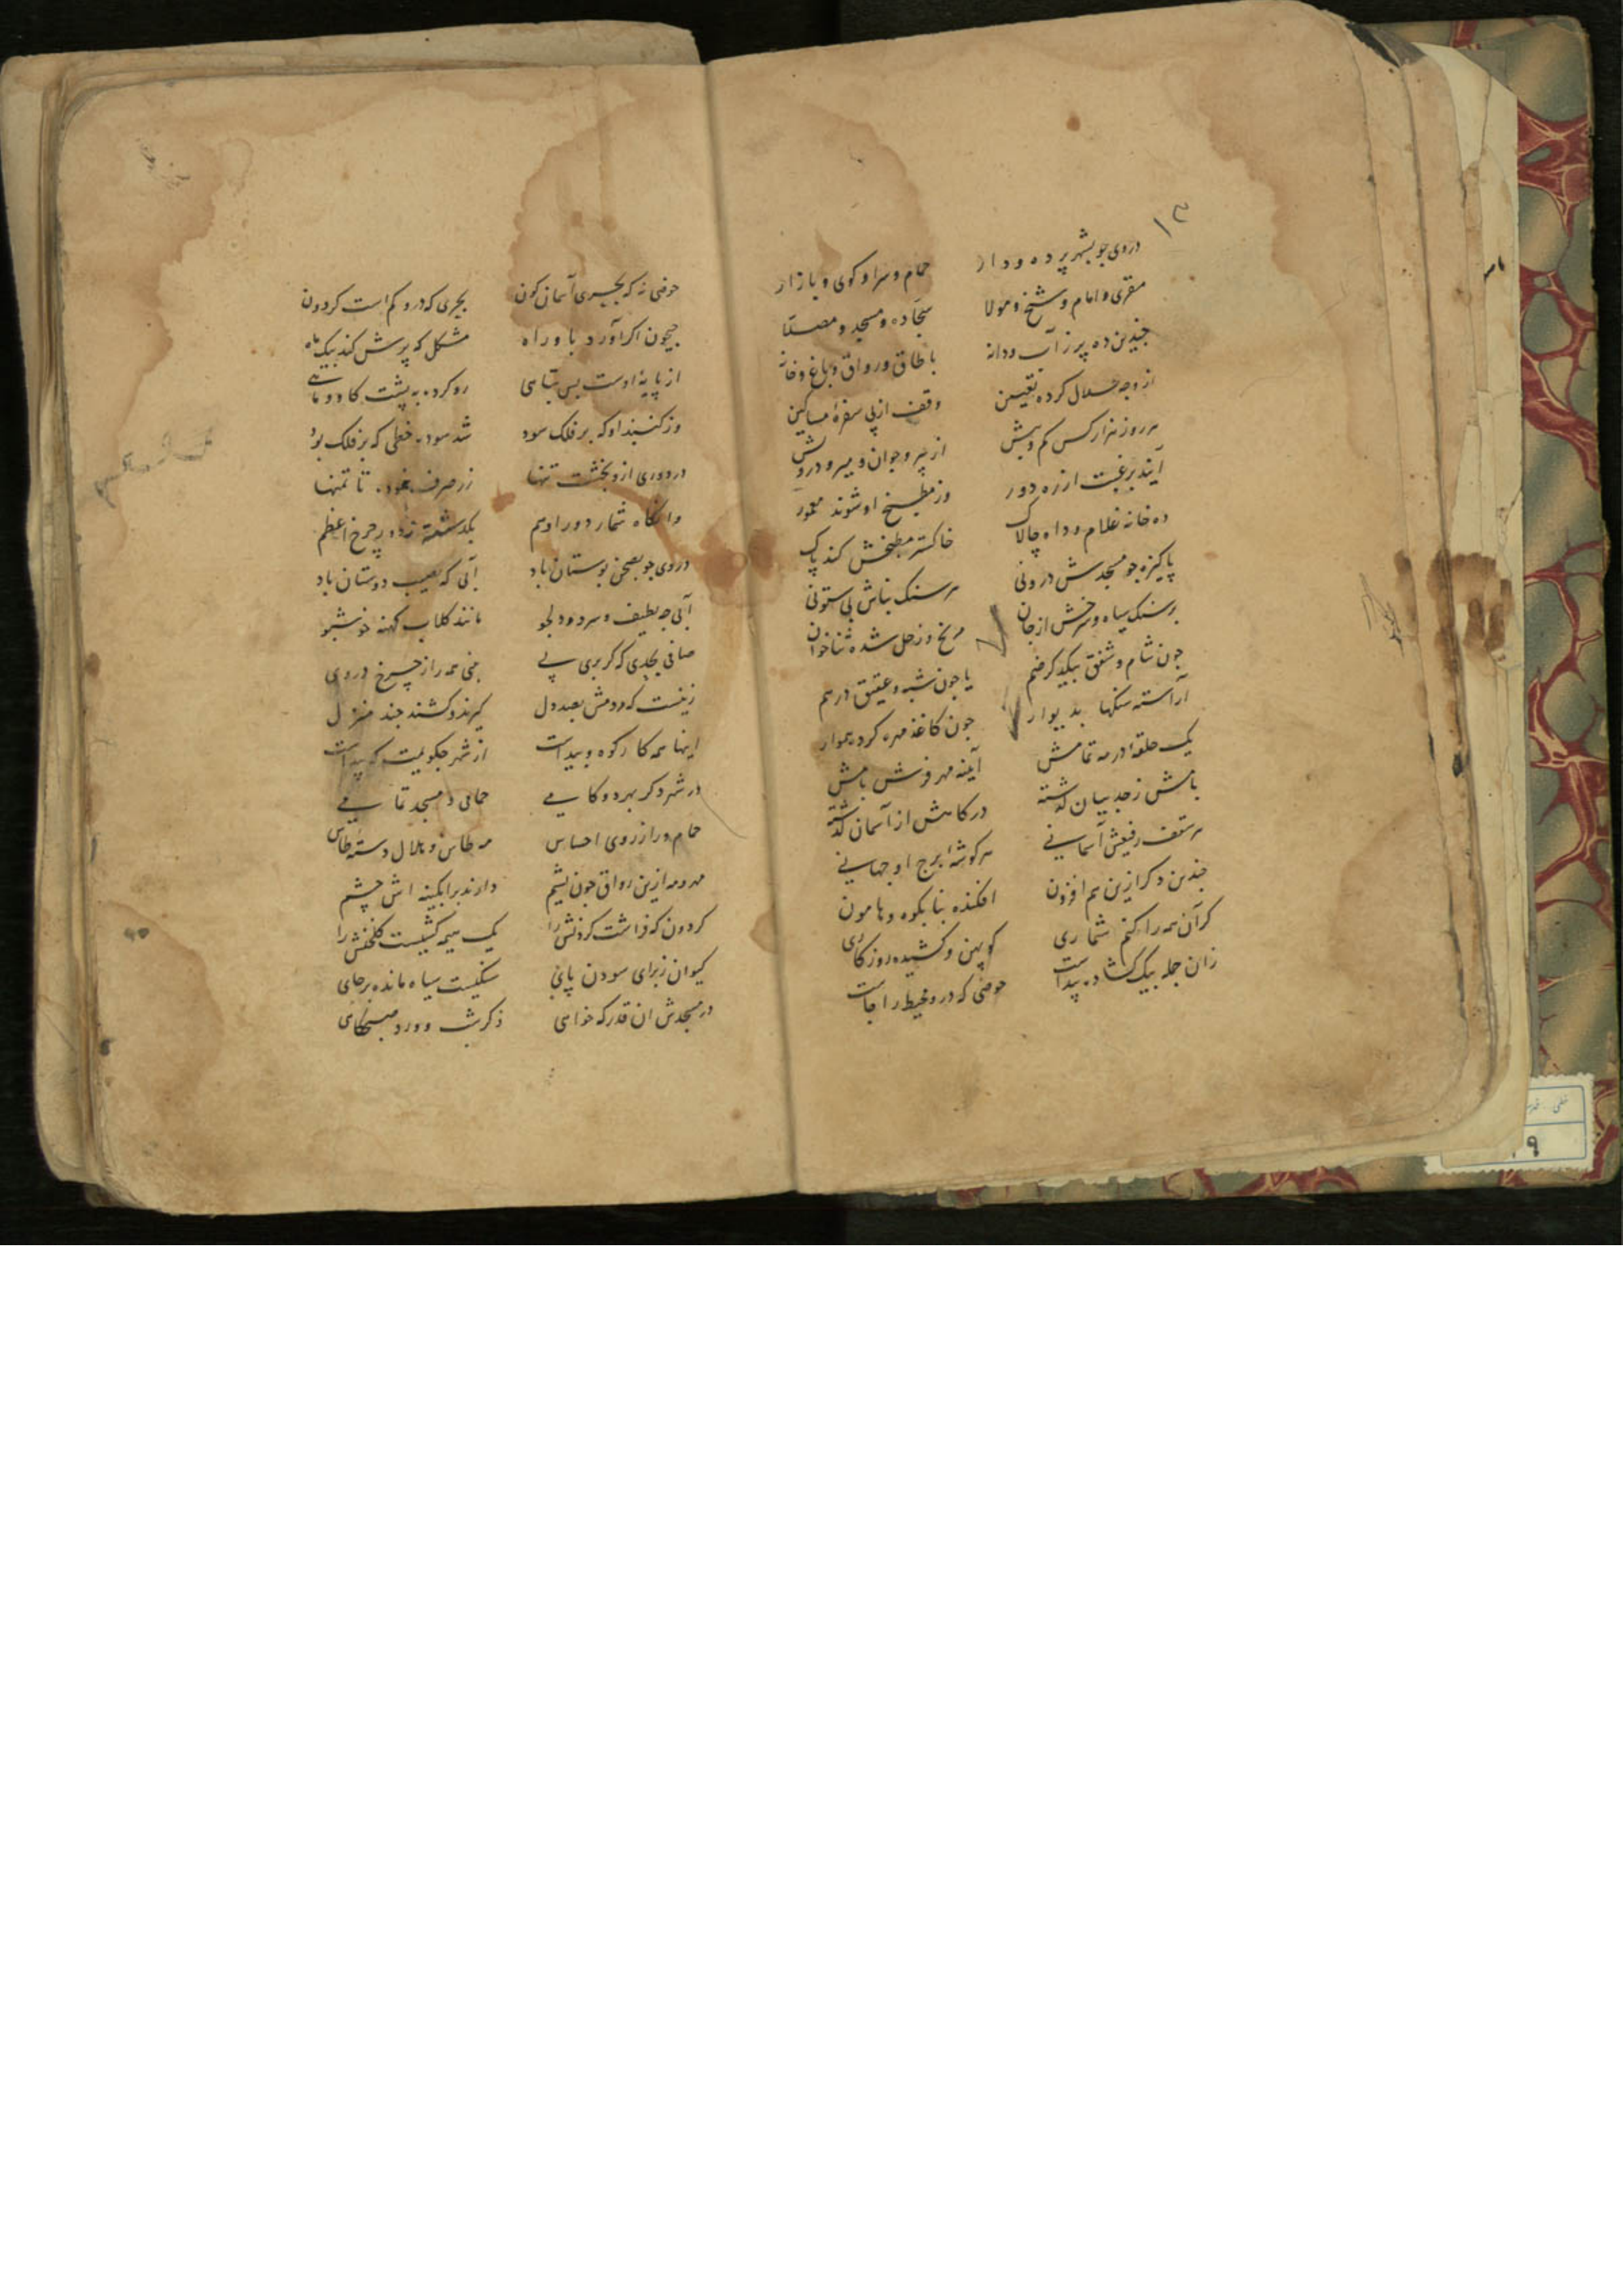 ۱۳
در وی جو بشهر پرده و دار حمام و سرا و کوی و بازار
مقری و امام و شیخ و مولا سجاده و مسجد و مصلا
جندین ده پر ز آب و دانه با طاق و رواق و باغ و خانه
از وجه حلال کرده تعیین وقف از پی سفرهٔ مساکین
هر روز هزار کس کم و بیش از پیر و جوان و میر و درویش
آیند برغبت از ره دور وز مطبخ او شوند معمور
ده خانه غلام و داه جالاک خاکستر مطبخش کند پاک
پاکیزه جو مسجدش درونی هر سنک بناش بی ستونی
بر سنک سیاه و سرخش از جان مریخ و زحل شده ثناخوان
جون شام و شفق بیکدکر ضم یا جون شبه و عقیق درهم
آراسته سنکها بدیوار جون کاغذ مهره کرده هموار
یک حلقهٔ در مه تمامش آیینه مهر فرش بامش
بامش ز حد بیان کذشته درکاهش از آسمان کذشته
هر سقف رفیعش آسمانی هر کوشهٔ برج او جهانی
جندین دکر ازین هم افزون افکنده بنا بکوه و هامون
کر آن همه را کنم شماری کو پهن و کشیده روزکاری
زان جمله بیک کشاده پیداست حوضی که درو محیط را جاست
حوضی نه که بحری آسمان کون بحری که درو کم است کردون
جیحون اکر آورد باو راه مشکل که پرش کند بیک ماه
از پایهٔ اوست بس تباهی رو کرده به پشت کاو و ماهی
وز کنبد او که بر فلک سود شد سوده خطی که بر فلک بود
در دوری ازو بخشت تنها زر صرف نموده تا تمنها
وانکاه شمار دور او هم بکذشته ز دور جرخ اعظم
در وی جو بصحن بوستان باد آبی که نصیب دوستان باد
آبی جه لطیف و سرد و دلجو مانند کلاب کهنه خوشبو
صافی بحدی که کر بری پی بینی همه راز جرخ در وی
کیرند و کشند جند منزل
اینها همه کار کوه و بیداست از شهر جکویمت که پیداست
در شهر دکر بهر دو کامی حمامی و مسجد تمامی
حمام ورا ز روی احساس مه طاس و هلال دسته طاس
مهر و مه ازین رواق جون یشم دارند بر ابکینه اش جشم
کردون که فراشت کردنش را یک نیمه کشیست کلخنش را
کیوان ز برای سودن پای سنکیست سیاه مانده بر جای
در مسجدش ان قدر که خواهی ذکرست و ورد صبحکاهی